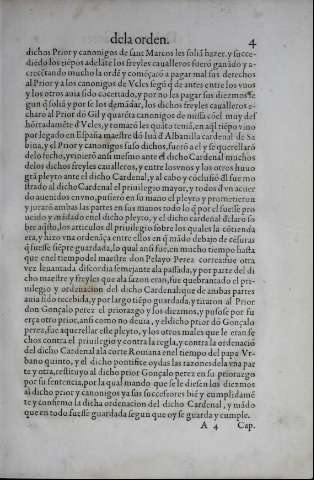 dela orden. 4
dichos Prior y canonigos de sant Marcos les soliã hazer. y succe-
diẽdo los tiẽpos adelãte los freyles caualleros fuerõ ganãdo y a-
crecẽtando mucho la ordẽ y començarõ a pagar mal sus derechos
al Prior y a los canonigos de Vcles segũ q̃ de antes entre los vnos
y los otros auia sido cõcertado, y por no les pagar sus diezmos se
gun q̃ soliã y por se los demãdar, los dichos freyles caualleros e-
charõ al Prior dõ Gil y quarẽta canonigos de missa cõel muy des
hõrradamẽte d'Vcles, y tomarõ les quãto teniã, en aq̃l tiẽpo vino
por legado en España maestre dõ suã d'Albanilla cardenal de Sa
bina, y el Prior y canonigos suso dichos, fuerõ a el y se querellarõ
delo fecho, y vinierõ ansi mesmo ante el dicho Cardenal muchos
delos dichos freyles caualleros, y entre los vnos y los otros huuo
grã pleyto ante el dicho Cardenal, y al cabo y cõclusiõ dl' fue mo
strado al dicho Cardenal el priuilegio mayor, y todos d'vn acuer
do auenidos en vno, pusierõ en su mano el pleyto y prometieron
y jurarõ ambas las partes en sus manos todo lo q̃ por el fuesse pro
ueydo y mãdado enel dicho pleyto, y el dicho cardenal d'claro so
bre ajusto, los articulos dl' priuilegio sobre los quales la cõtienda
era, y hizo vna ordenãça entre ellos en q̃ mãdo debajo de cẽsuras
q̃ fuesse siẽpre guardada, lo qual ansi fue, en mucho tiempo hasta
que enel tiempo del maestre don Pelayo Perez correa fue otra
vez leuantada discordia semejante ala passada, y por parte del di
cho maestre y freyles que ala sazon eran, fue quebrantado el pri-
uilegio y ordenacion del dicho Cardenal: que de ambas partes
auia sido recebida, y por largo tiẽpo guardada, y tiraron al Prior
don Gonçalo perez el priorazgo y los diezmos, y pusose por fu
erça otro prior, ansi como no deuia, y el dicho prior dõ Gonçalo
perez, fue a querellar este pleyto, y los otros males que le eran fe
chos contra el priuilegio y contra la regla, y contra la ordenaciõ
del dicho Cardenal ala corte Romana enel tiempo del papa Vr-
bano quinto, y el dicho pontifice oydas las razones dela vna par
te y otra, restituyo al dicho prior Gonçalo perez en su priorazgo
por su sentencia, por la qual mando que se le diessen los diezmos
al dicho prior y canonigos y a sus successores biẽ y cumplidamẽ
te y confirmo la dicha ordenacion del dicho Cardenal, y mãdo
que en todo fuesse guardada segun que oy se guarda y cumple.
A 4 Cap.